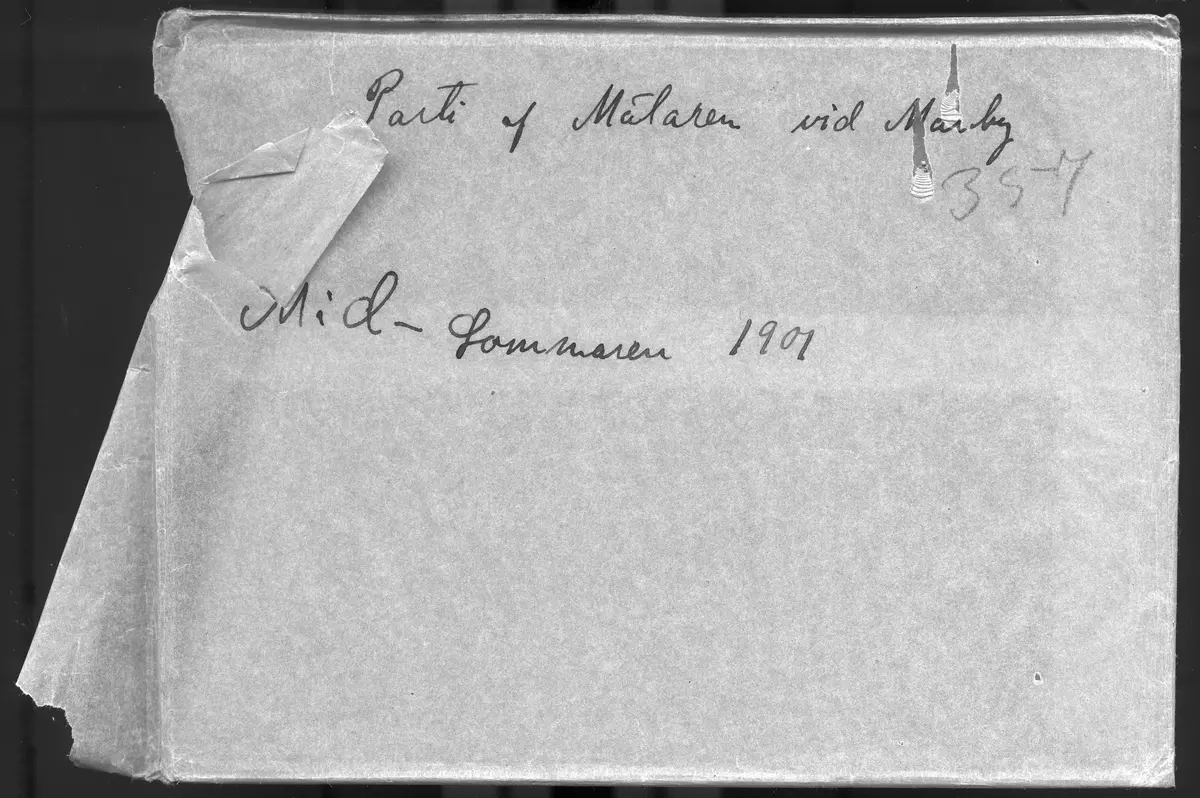 Parti af Mälaren vid Marby
357
Mid-Sommaren 1901